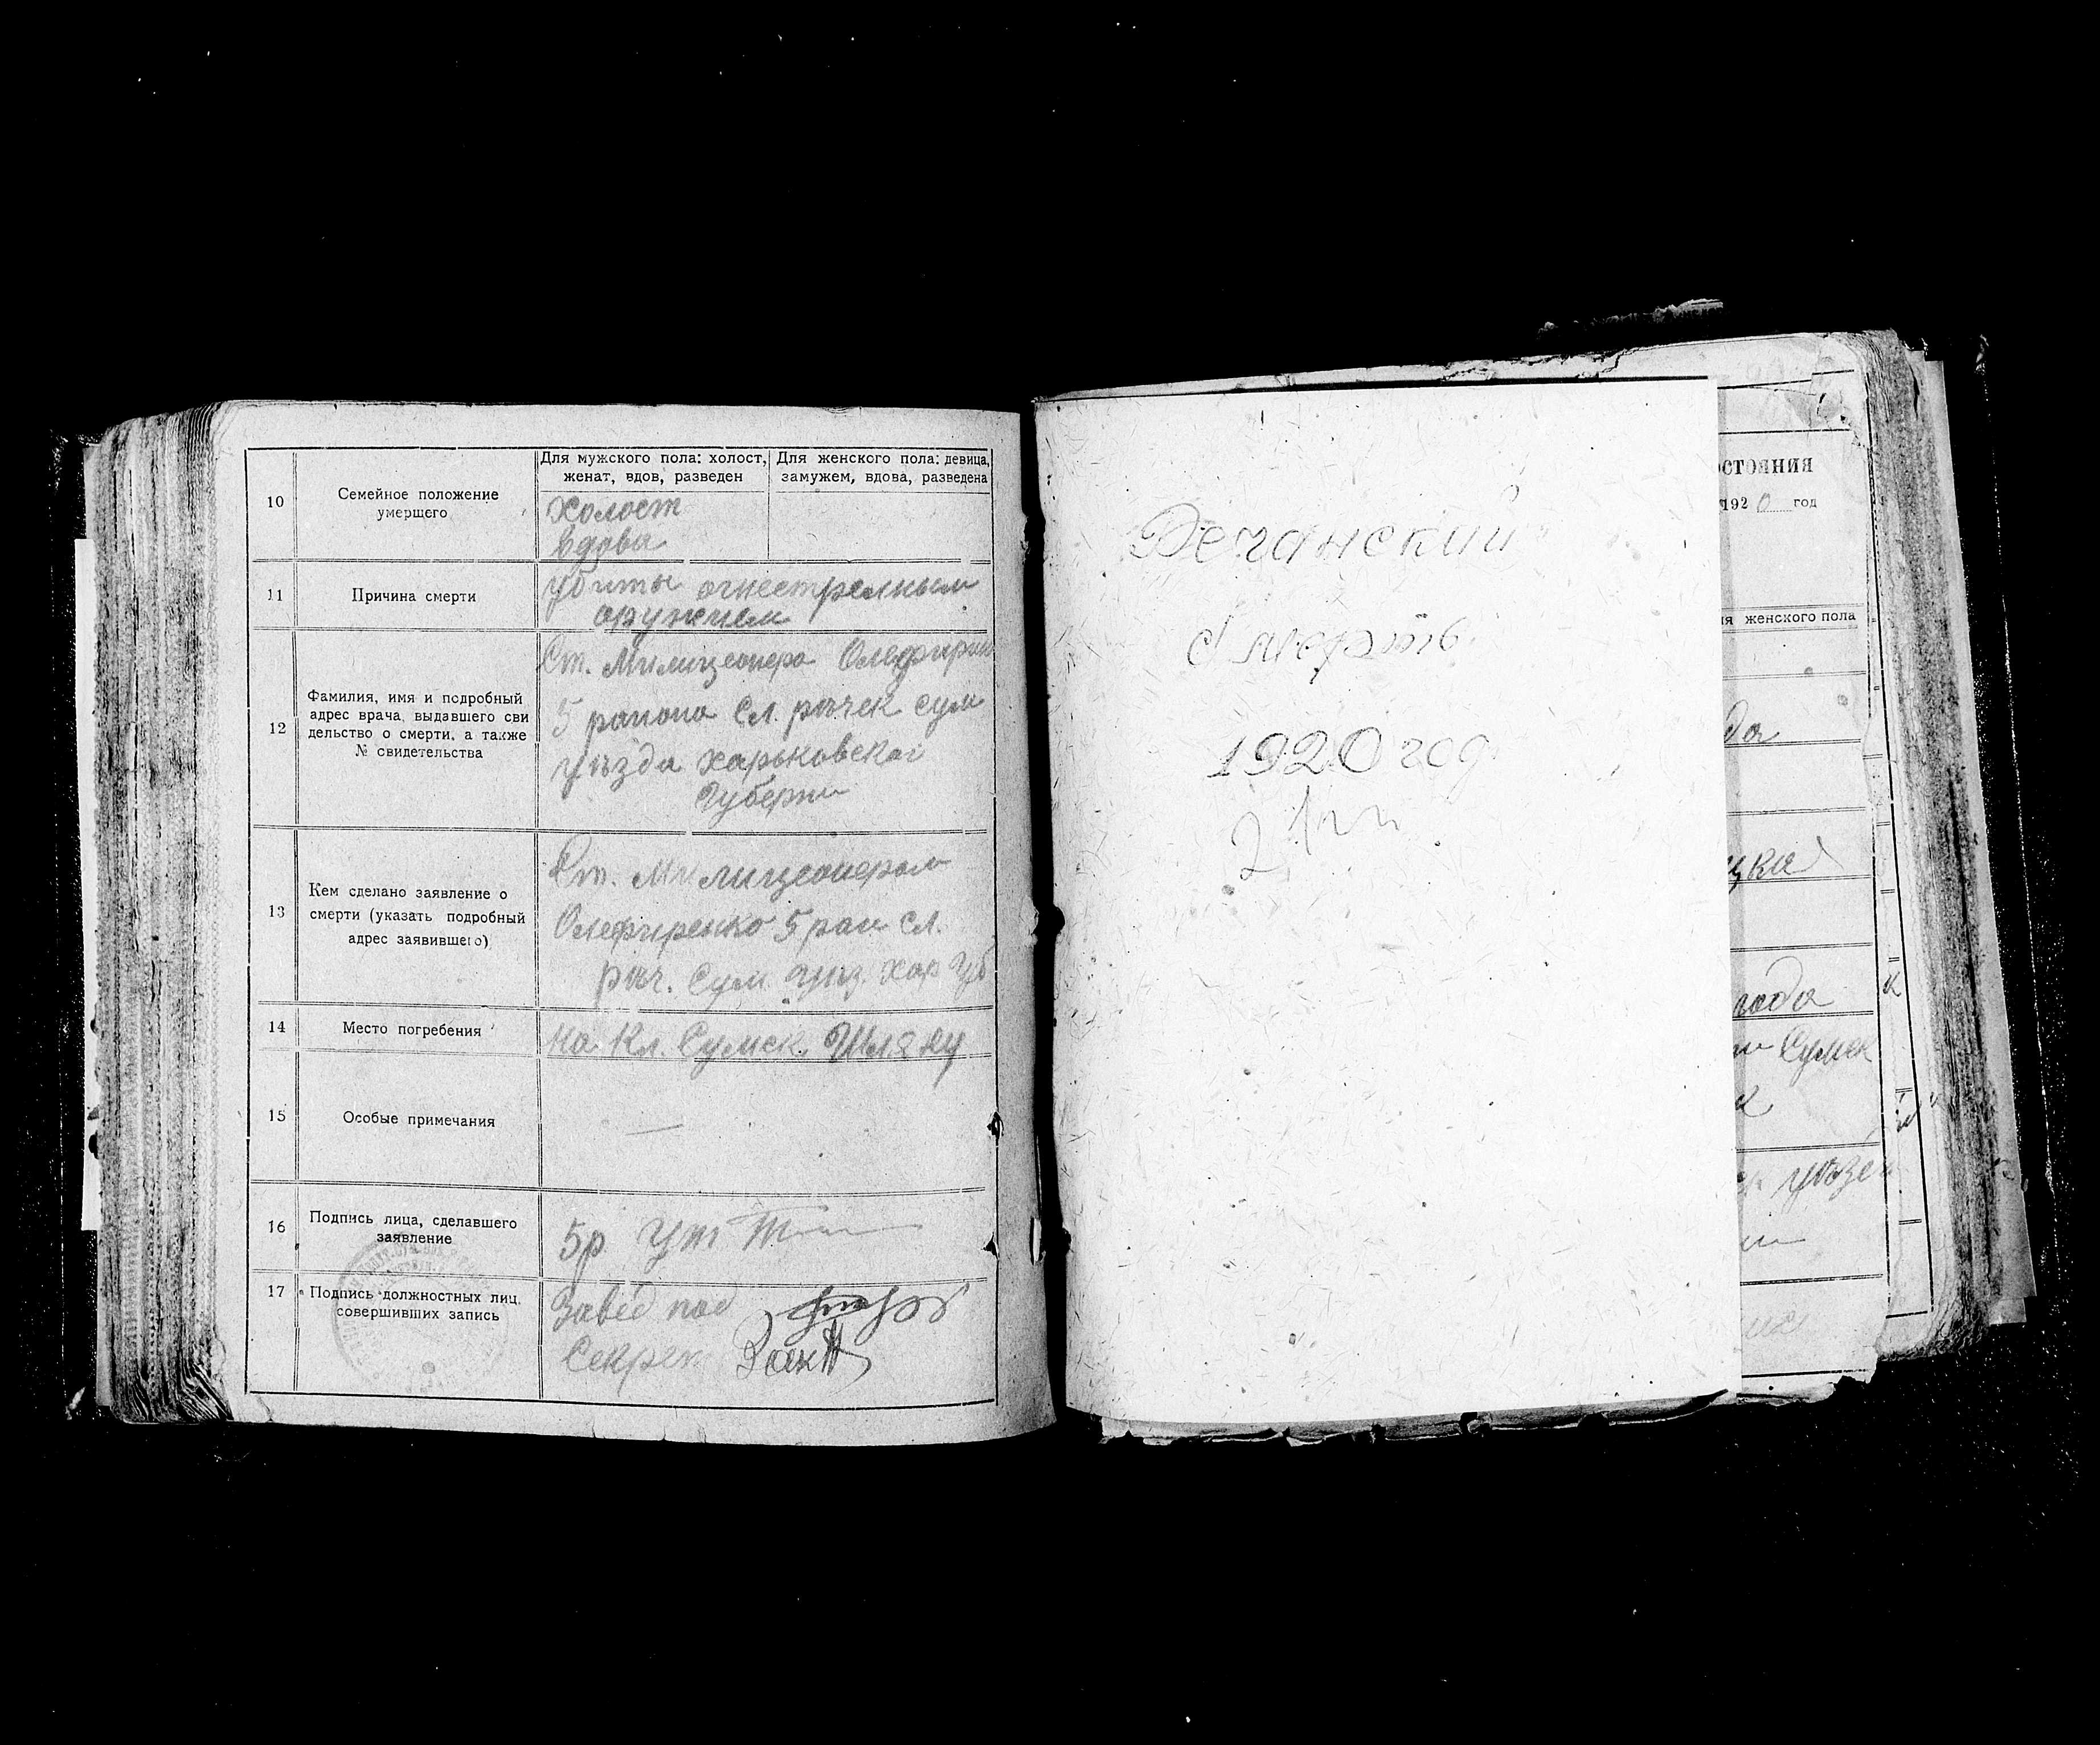 Для мужского пола: холост, женат, вдов, разведен
Для женского пола: девица, замужем, вдова, разведена
10
Семейное положение
умерщего
холост
вдова
11
Причина смерти
убиты огнестрелным
оружием
12
Фамилия, имя и подробный
адрес врача, выдавшего сви
дельство о смерти, а также
№ свидетельства
Ст. Милицеонера
5 раиона Сл. рѣчек Сум
уѣзда харьковской
Губерни
13
Кем сделано заявление о
смерти (указать подробный
адрес заявившего)
Ст. Милицеонером
Олефиренко 5 раи сл.
рѣч. Сум. уѣз. хар Губ
14
Место погребения
на Кл. Сумск. Шляху
15
Особые примечания
—
16
Подпись лица, сделавшего
заявление
5р
17
Подпись должностных лиц,
совершивших запись
Завед под
Секрет
Речанский
Смерть
1920 год
остояния
1920 год
ия женского пола
да
цка
года
Сумск
к
уѣзе